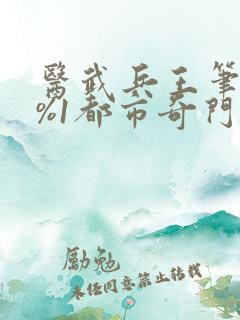 醫武兵王筆
%1都市奇門
勵勉
未經同意禁止轉載